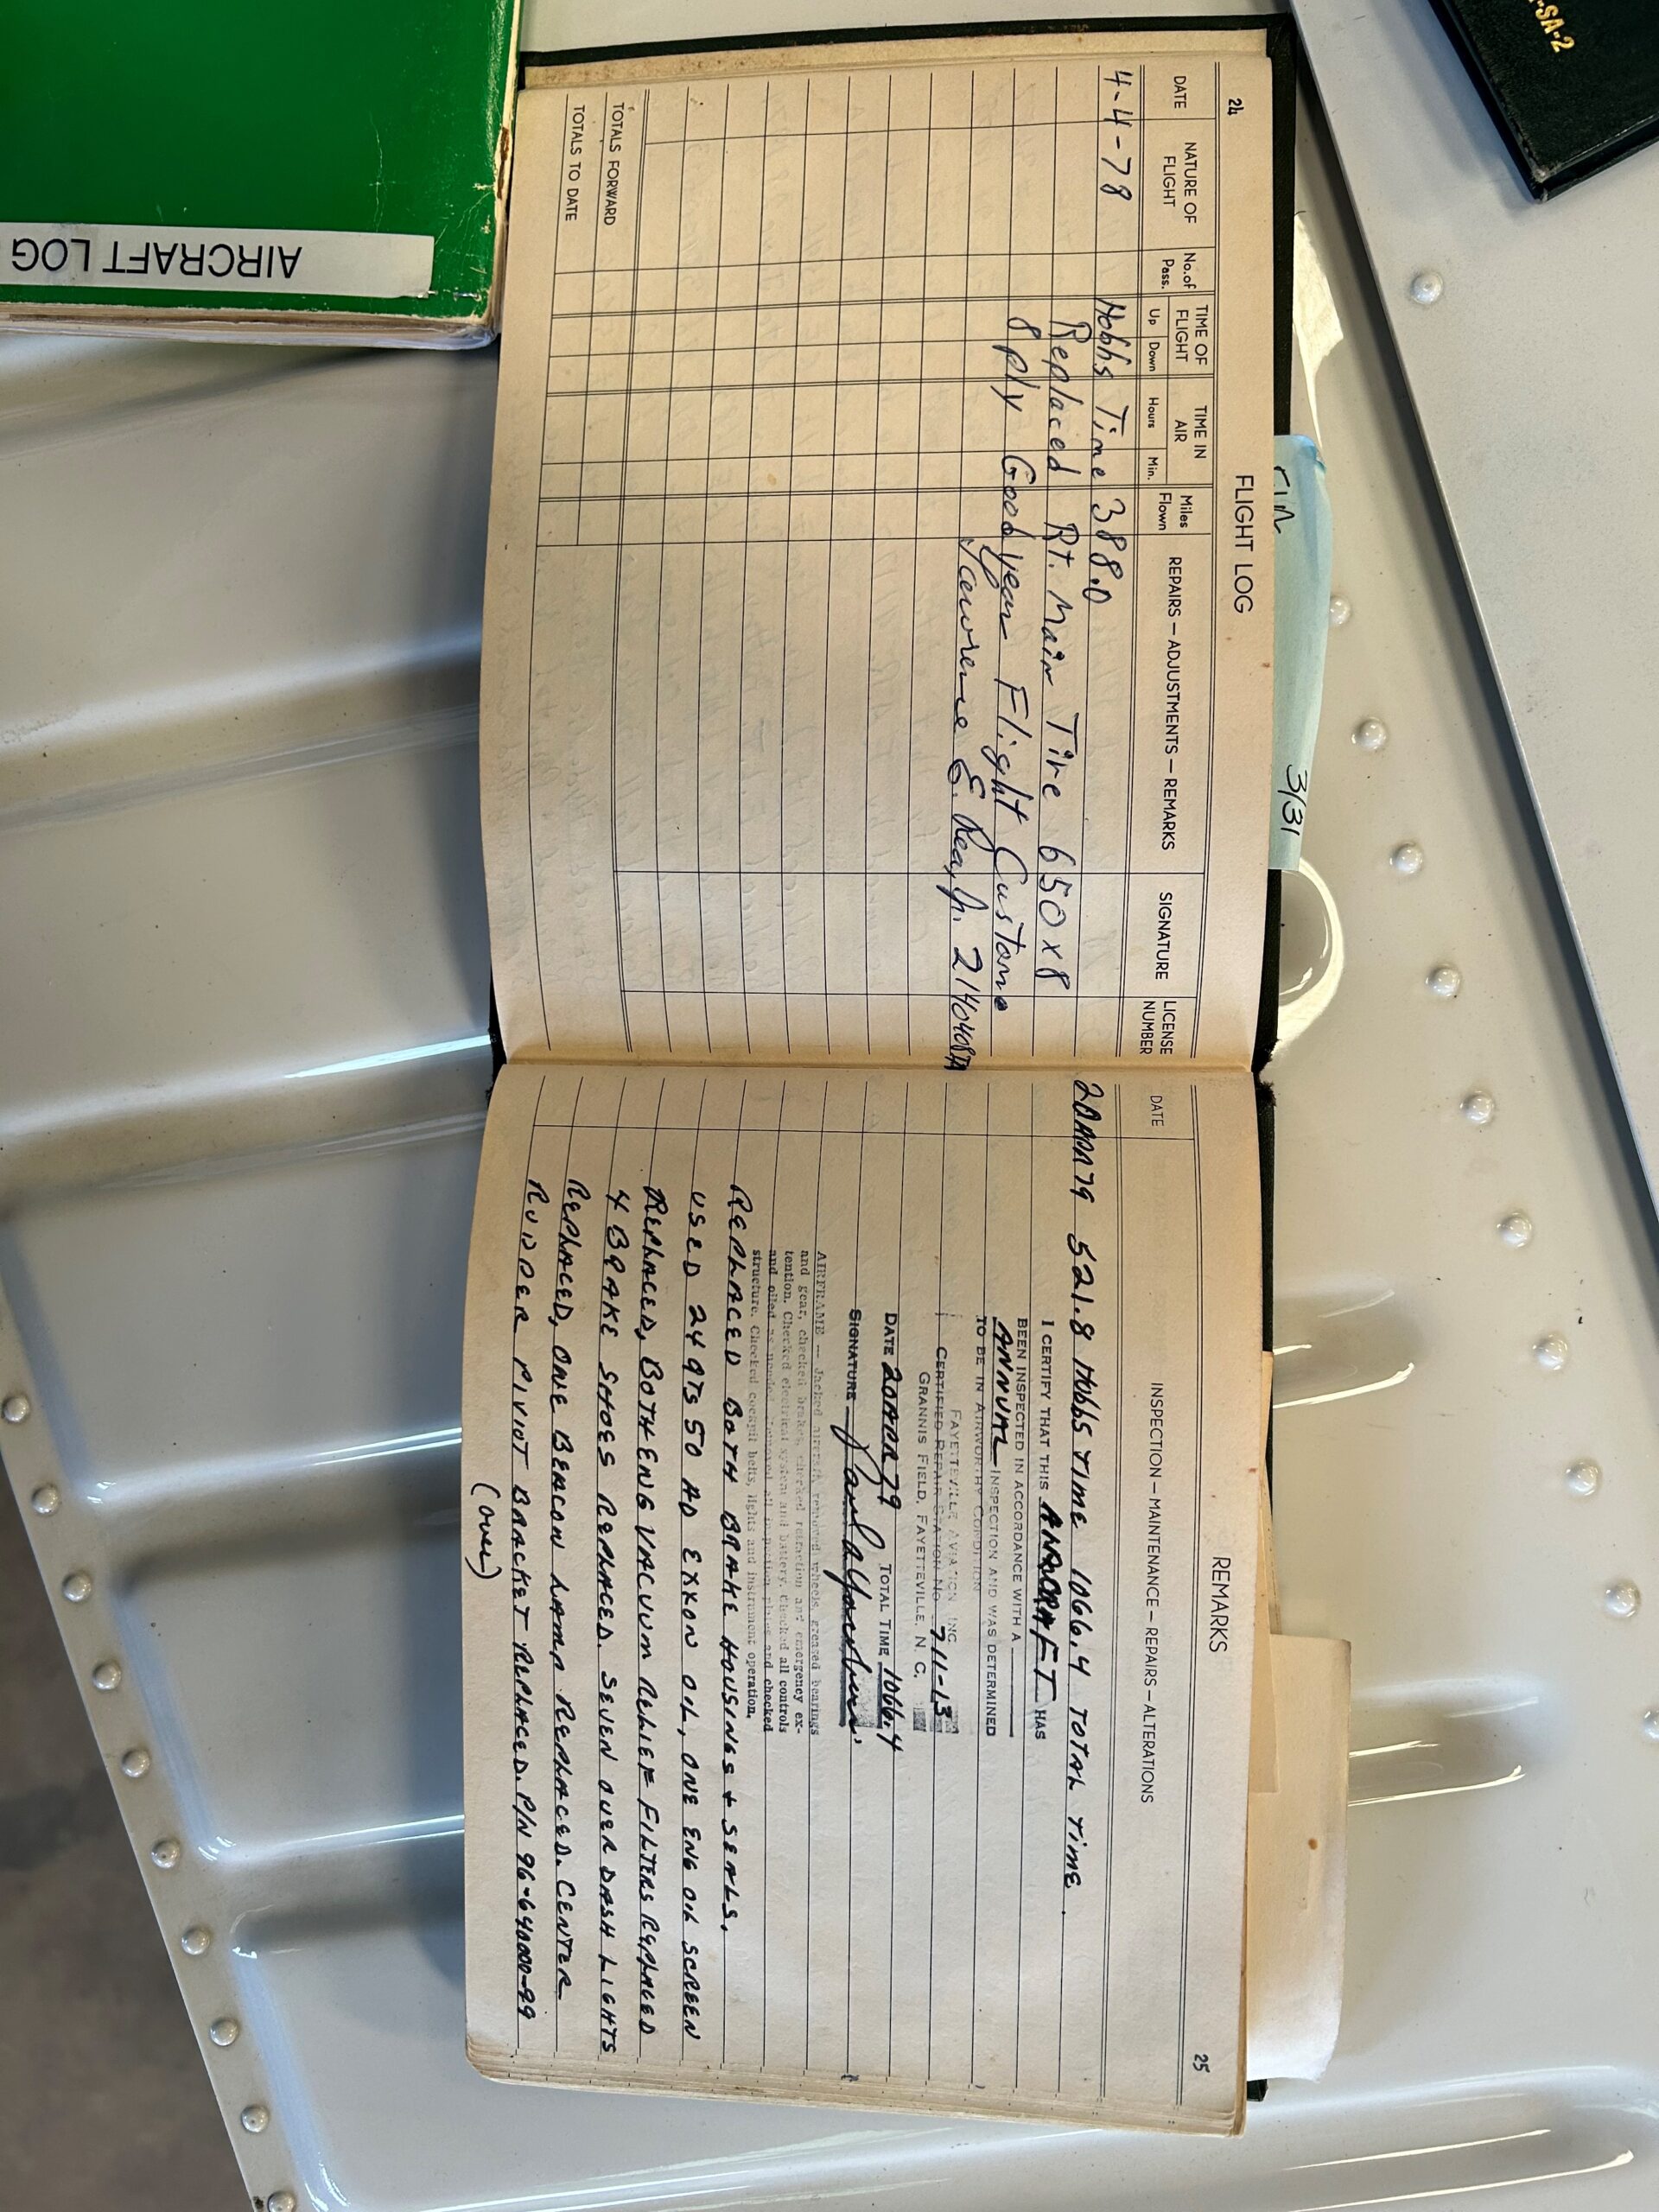 -SA-2
AIRCRAFT LOG
3/31
24
FLIGHT LOG
DATE
NATURE OF FLIGHT
No. of Pass.
TIME OF FLIGHT
Up
Down
TIME IN AIR
Hours
Min.
Miles Flown
REPAIRS — ADJUSTMENTS — REMARKS
SIGNATURE
LICENSE NUMBER
4-4-78
Hobbs Time 388.0
Replaced Rt. Main Tire 650x8
8 ply Goodyear Flight Custom.
E. 2140408
TOTALS FORWARD
TOTALS TO DATE
REMARKS
25
DATE
INSPECTION — MAINTENANCE — REPAIRS — ALTERATIONS
79 521.8 Hobbs TIME 1066.4 TOTAL TIME.
I CERTIFY THAT THIS HAS
BEEN INSPECTED IN ACCORDANCE WITH A
ANNUAL INSPECTION AND WAS DETERMINED
TO BE IN AIRWORTHY CONDITION
FAYETTEVILLE AVIATION INC
CERTIFIED REPAIR STATION No. 711-13
GRANNIS FIELD, FAYETTEVILLE, N. C.
DATE 79 TOTAL TIME 1066.4
SIGNATURE
AIRFRAME — Jacked aircraft, removed wheels, greased bearings
and gear, checked brakes, checked retraction and emergency ex-
tention. Checked electrical system and battery. Checked all controls
and oiled as needed. Removed all inspection plates and checked
structure. Checked cockpit belts, lights and instrument operation.
REPLACED BOTH BRAKE HOUSINGS + SEALS.
USED 24 QTS 50 AD EXXON OIL, ONE ENG OIL SCREEN
REPLACED, BOTH ENG VACUUM RELIEF FILTERS REPLACED
4 BRAKE SHOES REPLACED. SEVEN OVER DASH LIGHTS
REPLACED, ONE BEACON LAMP REPLACED. CENTER
RUDDER PIVIOT BRACKET REPLACED. P/N 96-640000-99
(over)